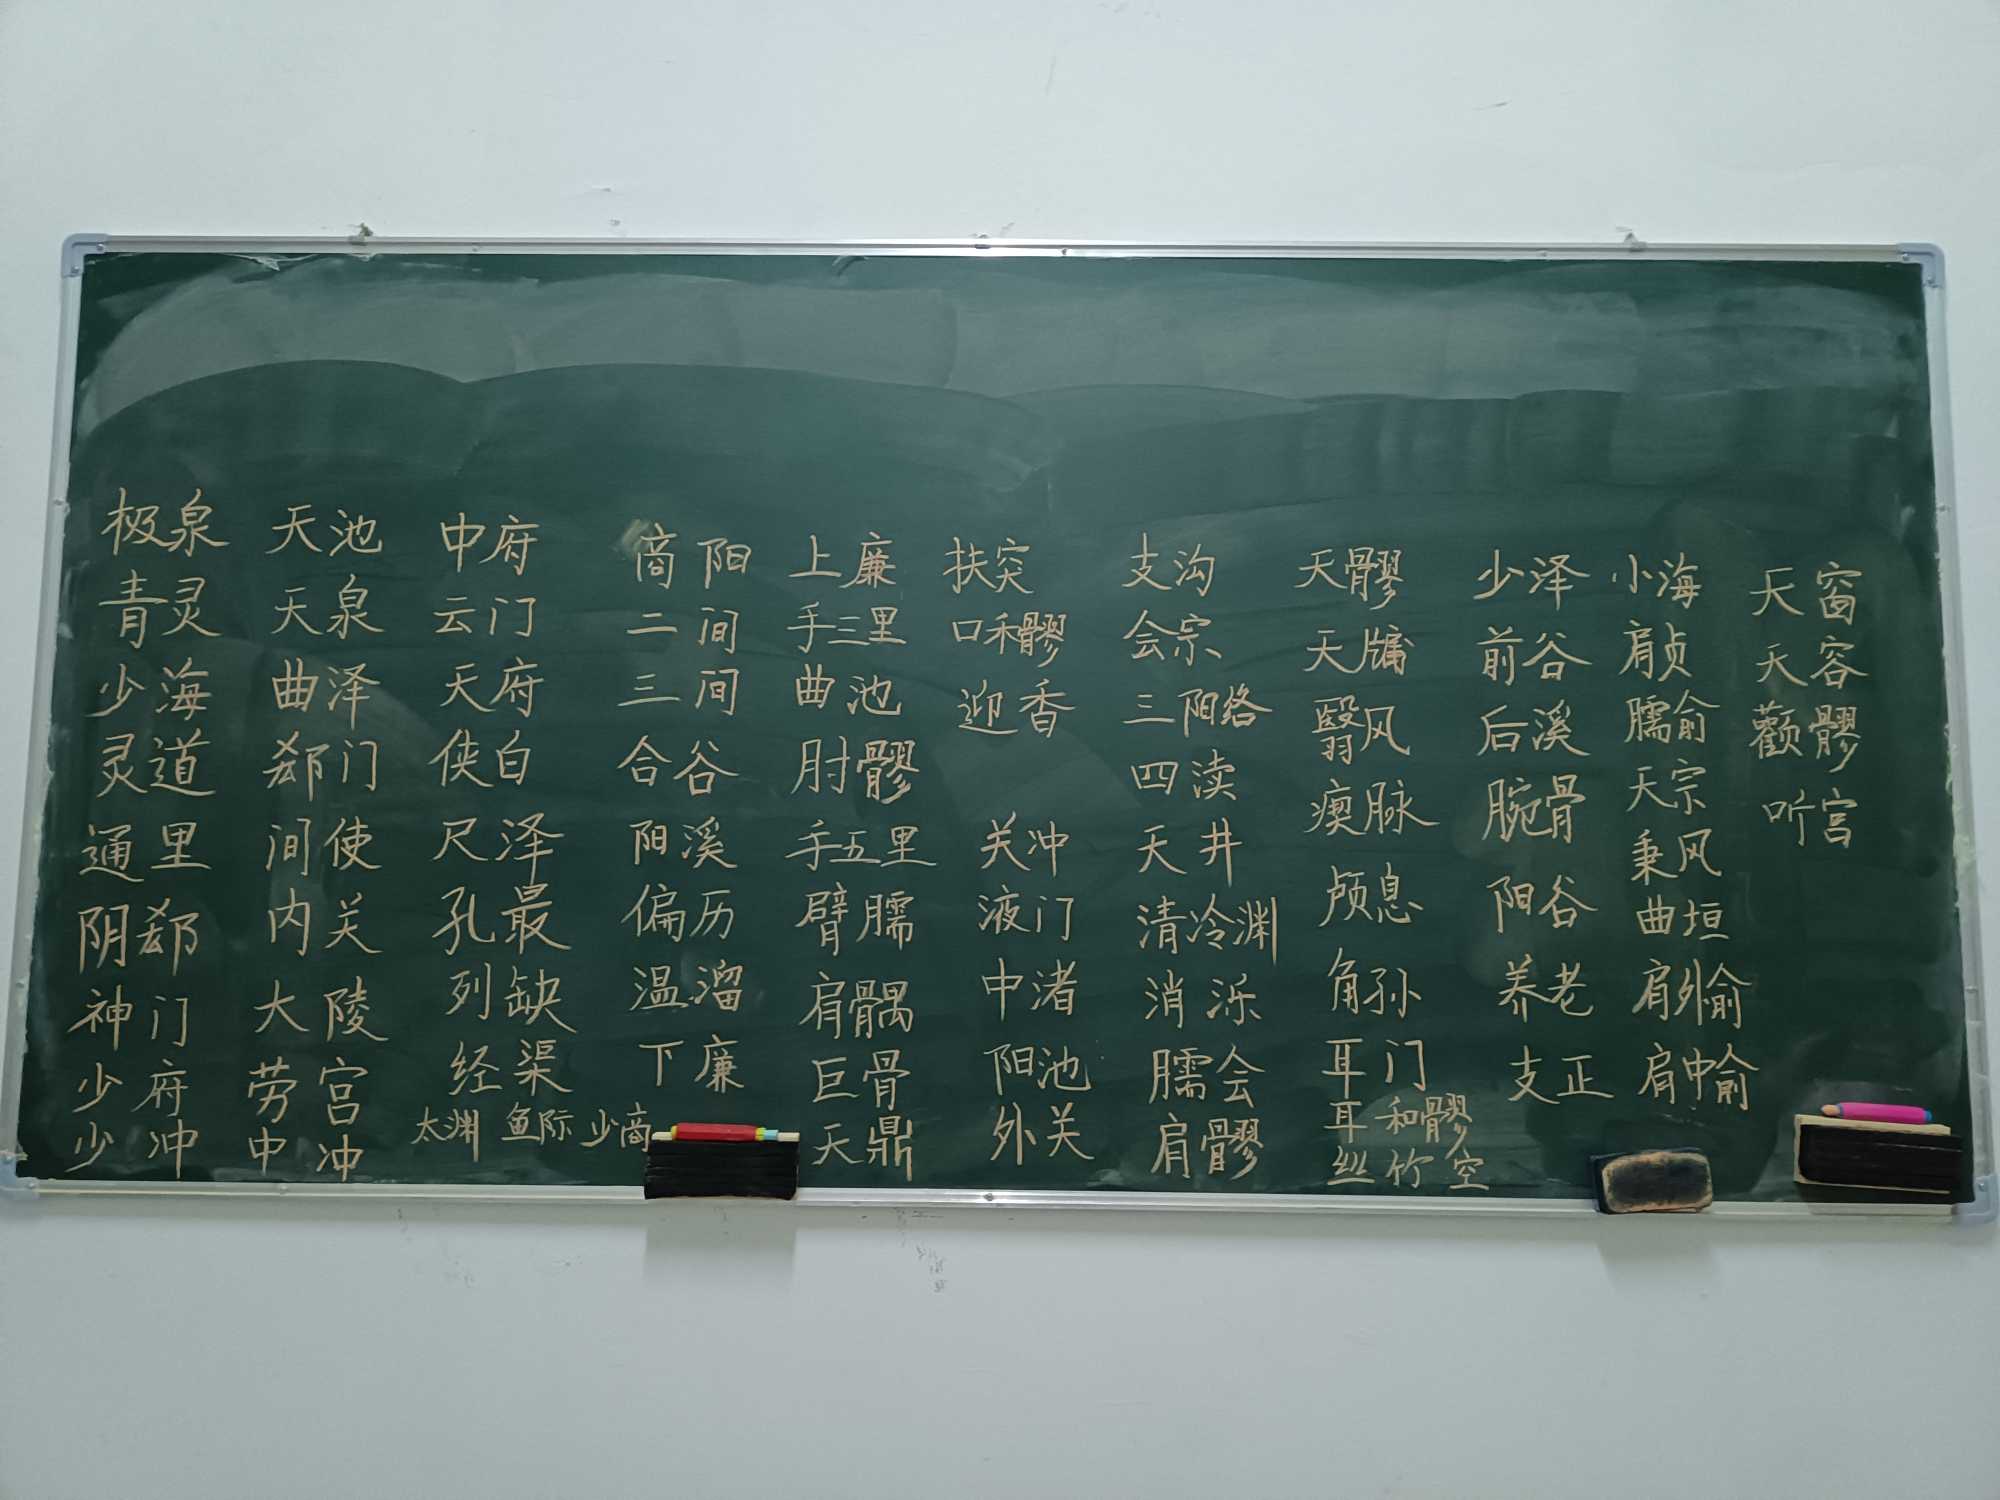 极泉
青灵
少海
灵道
通里
阴郄
神门
少府
少冲
天池
天泉
曲泽
郄门
间使
内关
大陵
劳宫
中冲
中府
云门
天府
侠白
尺泽
孔最
列缺
经渠
太渊 鱼际 少商
商阳
二间
三间
合谷
阳溪
偏历
温溜
下廉
上廉
手三里
曲池
肘髎
手五里
臂臑
肩髃
巨骨
天鼎
扶突
口禾髎
迎香
关冲
液门
中渚
阳池
外关
支沟
会宗
三阳络
四渎
天井
清冷渊
消泺
臑会
肩髎
天髎
天牖
翳风
瘈脉
颅息
角孙
耳门
耳和髎
丝竹空
少泽
前谷
后溪
腕骨
阳谷
养老
支正
小海
肩贞
臑俞
天宗
秉风
曲垣
肩外俞
肩中俞
天窗
天容
颧髎
听宫